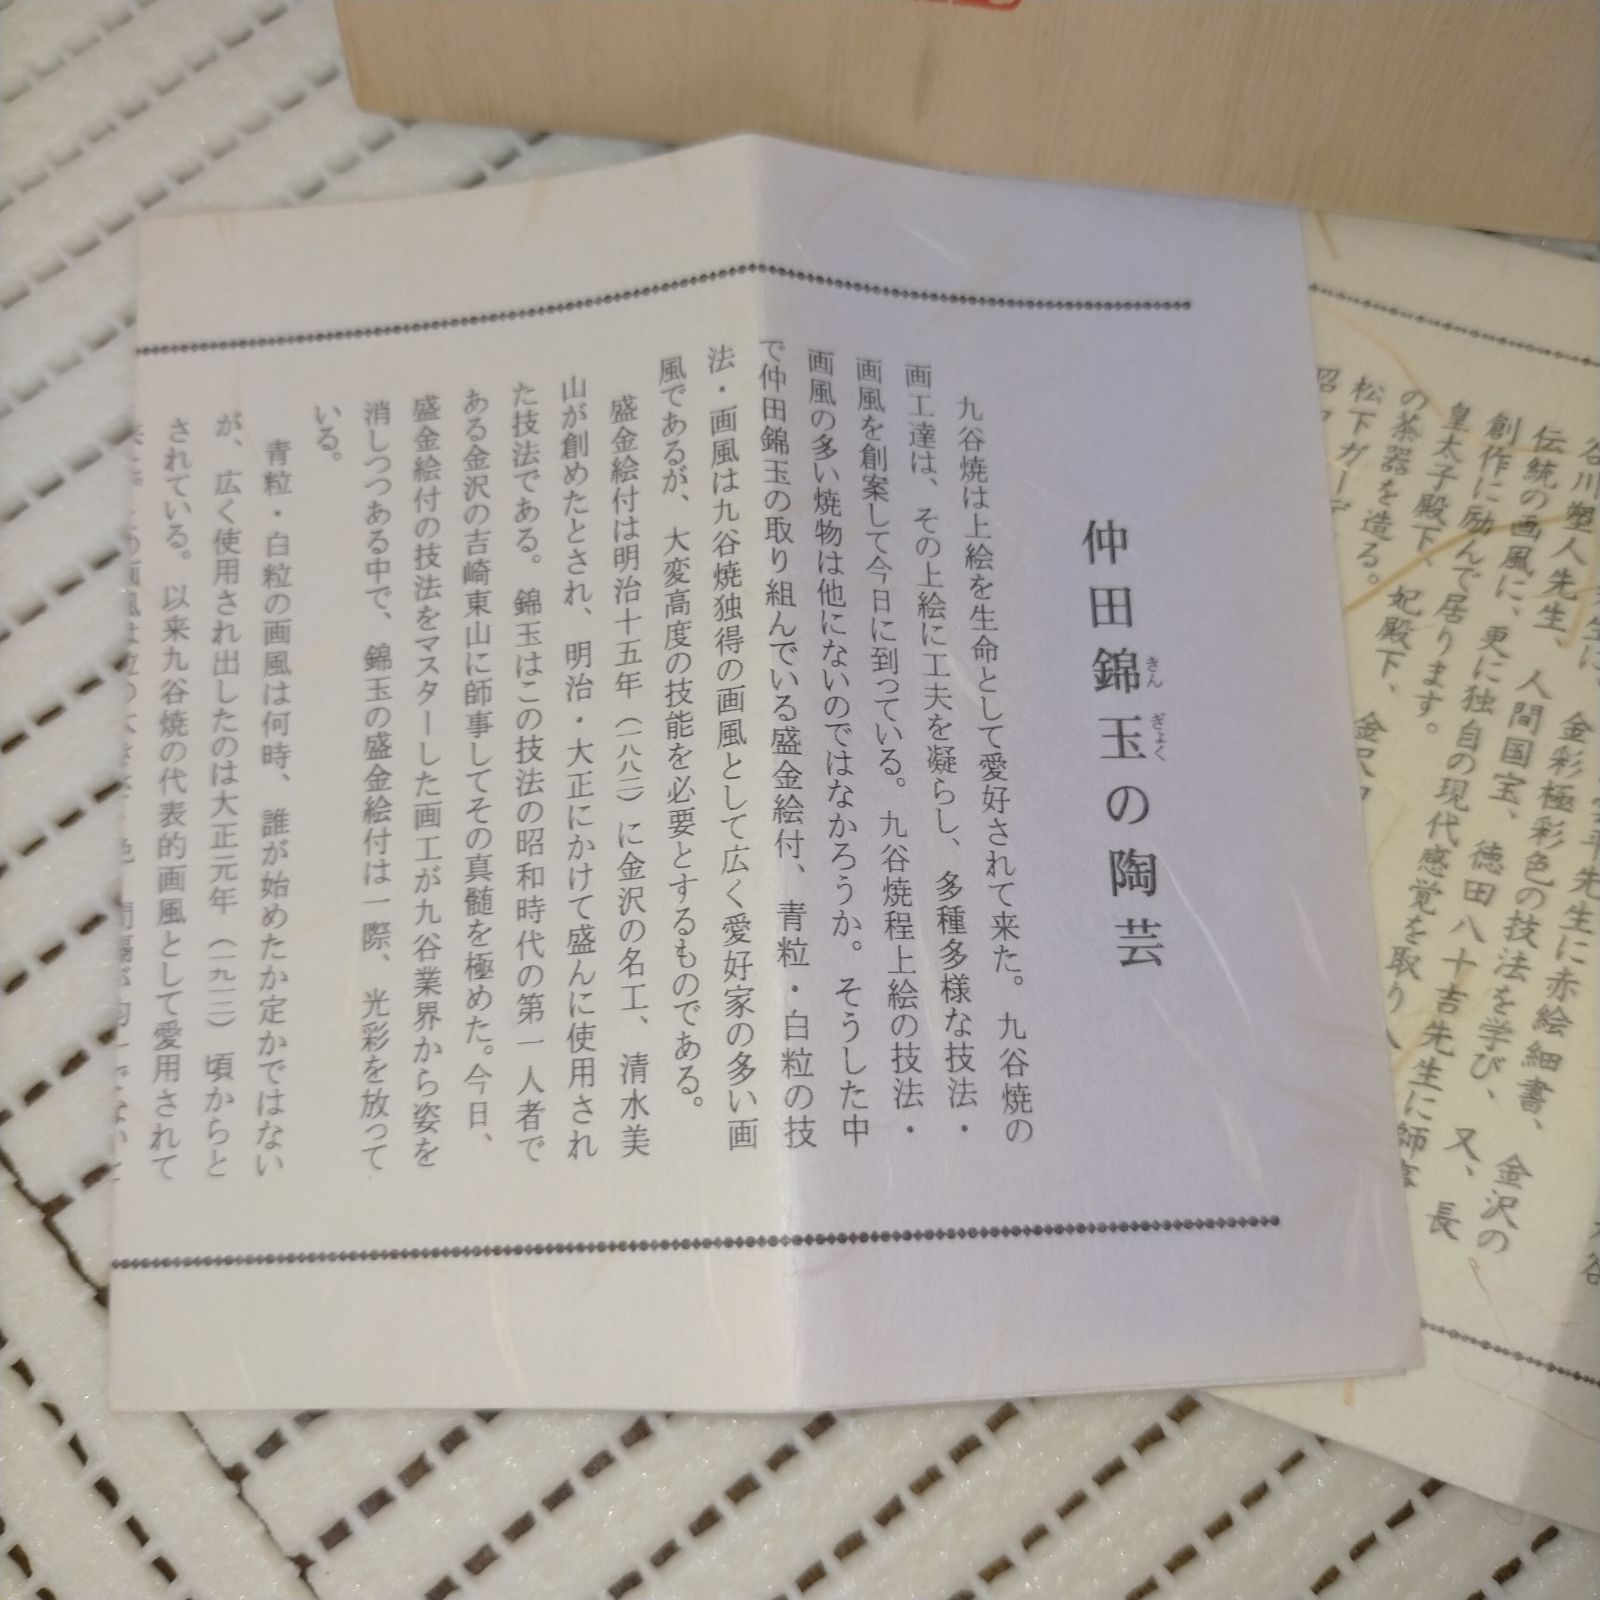 仲田錦玉の陶芸
きんぎょく
九谷焼は上絵を生命として愛好されて来た。九谷焼の
画工達は、その上絵に工夫を凝らし、多種多様な技法・
画風を創案して今日に到っている。九谷焼程上絵の技法・
画風の多い焼物は他にないのではなかろうか。そうした中
で仲田錦玉の取り組んでいる盛金絵付、青粒・白粒の技
法・画風は九谷焼独得の画風として広く愛好家の多い画
風であるが、大変高度の技能を必要とするものである。
盛金絵付は明治十五年（一八八二）に金沢の名工、清水美
山が創めたとされ、明治・大正にかけて盛んに使用され
た技法である。錦玉はこの技法の昭和時代の第一人者で
ある金沢の吉崎東山に師事してその真髄を極めた。今日、
盛金絵付の技法をマスターした画工が九谷業界から姿を
消しつつある中で、錦玉の盛金絵付は一際、光彩を放って
いる。
青粒・白粒の画風は何時、誰が始めたか定かではない
が、広く使用され出したのは大正元年（一九一二）頃からと
されている。以来九谷焼の代表的画風として愛用されて
谷川塑人先生、人間国宝、徳田八十吉先生に師事
伝統の画風に、更に独自の現代感覚を取り入
創作に励んで居ります。又、長
皇太子殿下、妃殿下、金沢
の茶器を造る。
松下ガーデ